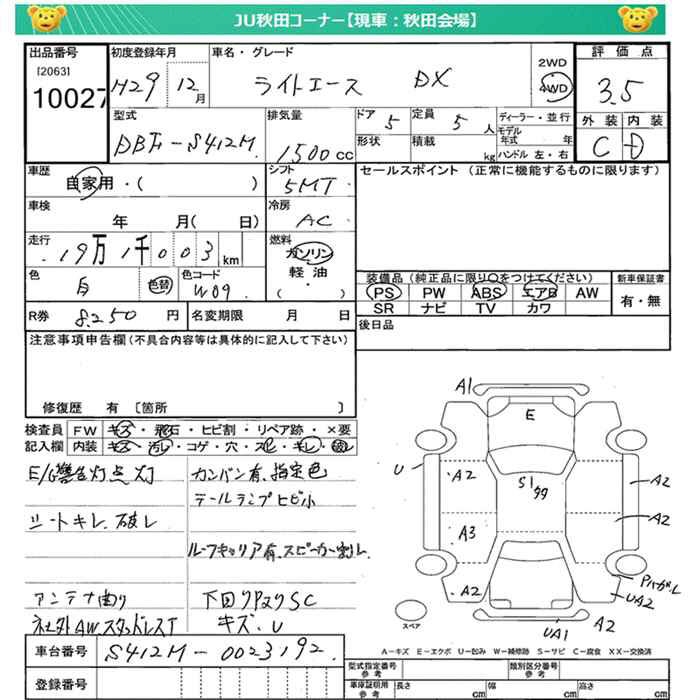 JU秋田コーナー【現車：秋田会場】
出品番号 初度登録年月 車名・グレード 2WD 評価点
[2063] H29 12月 ライトエース DX 4WD 3.5
10027
型式 排気量 ドア 5 定員 5人 ディーラー・並行 外装 内装
DBF-S412M 1500cc 形状 積載 kg モデル年式 年 C D
ハンドル 左・右
車歴 シフト セールスポイント (正常に機能するものに限ります)
自家用・( ) 5MT
車検 冷房
年 月( 日) AC
走行 燃料
19万1千003km ガソリン
軽油
色 色替 色コード ・( ) 装備品 (純正品に限り○をつけてください) 新車保証書
白 W09 PS PW ABS エアB AW 有・無
SR ナビ TV カワ
R券 8,250円 名変期限 月 日 後日品
注意事項申告欄(不具合内容等は具体的に記入して下さい)
修復歴 有 〔箇所 〕
検査員 FW キズ・飛石・ヒビ割・リペア跡・×要
記入欄 内装 キズ・汚レ・コゲ・穴・スレ・キレ・破レ
E/G警告灯点灯 カンバン有、指定色
テールランプヒビ小
シートキレ、破レ
ルーフキャリア有、スピーカー割レ
アンテナ曲り 下回りPヌリSC
社外AWスタッドレスT キズ、U
車台番号 S412M-0023192
登録番号
A1
E
U
A2
S1
99
A2
A3
A2
A2
PハガレL
UA2
UA1
A2
スペア
A－キズ E－エクボ U－凹み W－補修跡 S－サビ C－腐食 XX－交換済
型式指定番号 参考 類別区分番号 参考
車庫証明用 参考 長さ cm 幅 cm 高さ cm